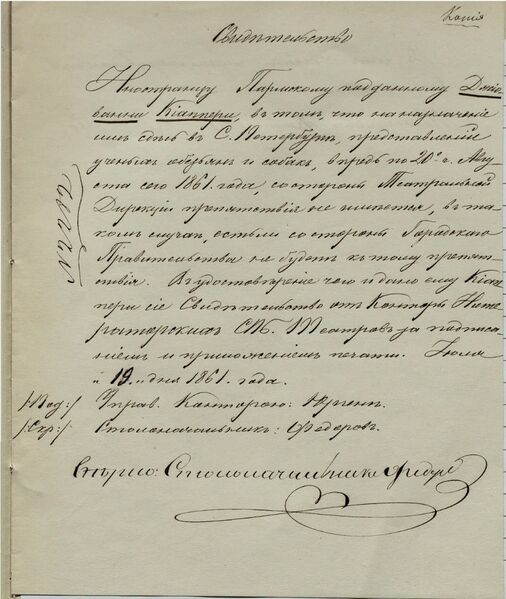 Копія
Свидѣтельство
Иностранцу Пармскому подданному Джiо-
ванни Кiаппери, въ томъ что на назначенiе
имъ здѣсь въ С. Петербургѣ, представленiй
ученыхъ обезьянъ и собакъ, впредь по 20е. Авгу
ста сего 1861 года, со стороны Театральной
Дирекцiи препятствiя не имѣется, въ та-
комъ случаѣ, естьли со стороны Городскаго
Правительства не будетъ къ тому препят-
ствiя. Въ удостовѣренiе чего и дано ему Кiап-
пери сiе Свидѣтельство отъ Конторы Импе-
раторскихъ СПб. Театровъ за подписа-
нiемъ и приложенiемъ печати. Iюля
"19" дня 1861. года.
/:Под:/ Управ. Конторою: Юргенс.
/:Скр:/ Столоначальникъ: Федоровъ.
Вѣрно: Столоначальникъ Федоров